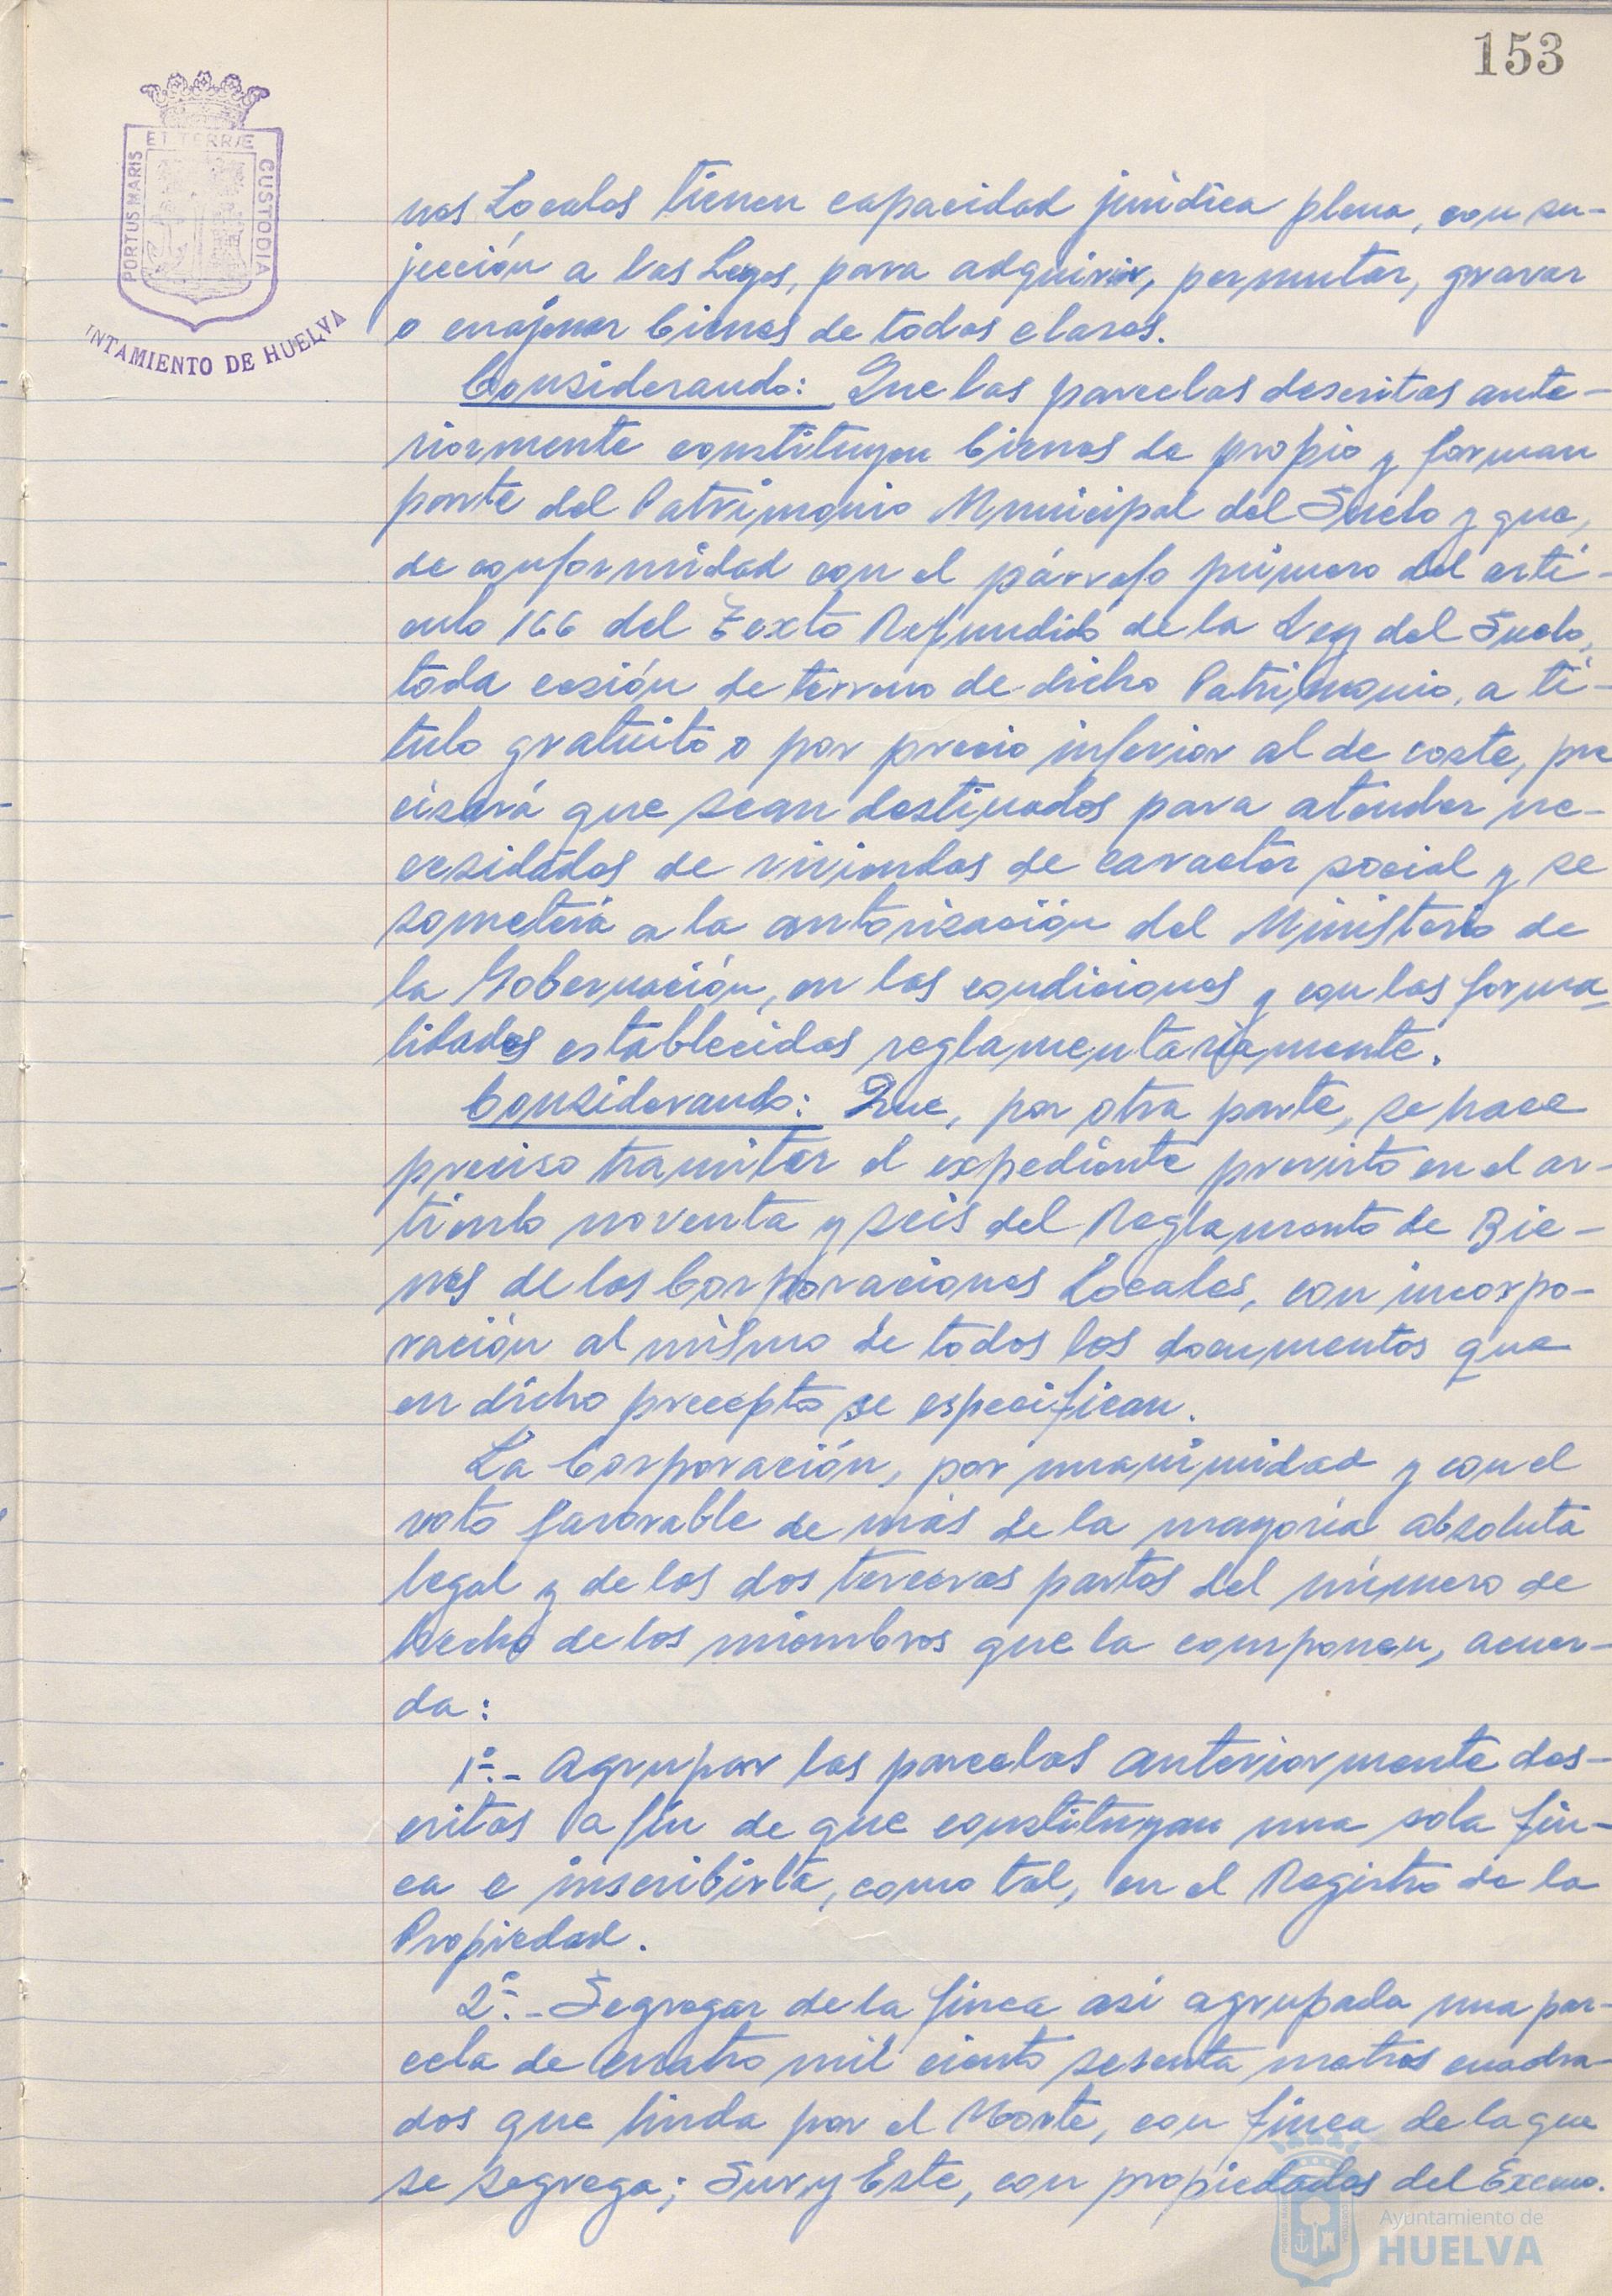 153
ET TERRÆ
PORTUS MARIS
CUSTODIA
NTAMIENTO DE HUELVA
nes Locales tienen capacidad jurídica plena, con su-
jección a las Leyes, para adquirir, permutar, gravar
o enajenar bienes de todas clases.
Considerando: Que las parcelas descritas ante-
riormente constituyen bienes de propio y forman
parte del Patrimonio Municipal del Suelo y que,
de conformidad con el párrafo primero del artí-
culo 166 del Texto Refundido de la Ley del Suelo,
toda cesión de terreno de dicho Patrimonio, a tí-
tulo gratuito o por precio inferior al de coste, pre
cisará que sean destinados para atender ne-
cesidades de viviendas de caracter social y se
someterá a la autorización del Ministerio de
la Gobernación, en las condiciones y con las forma
lidades establecidas reglamentariamente.
Considerando: Que, por otra parte, se hace
preciso tramitar el expediente previsto en el ar-
tículo noventa y seis del Reglamento de Bie-
nes de las Corporaciones Locales, con incorpo-
ración al mismo de todos los documentos que
en dicho precepto se especifican.
La Corporación, por unanimidad y con el
voto favorable de más de la mayoría absoluta
legal y de las dos terceras partes del número de
hecho de los miembros que la componen, acuer-
da:
1º.- Agrupar las parcelas anteriormente des-
critas a fin de que constituyan una sola fin-
ca e inscribirla, como tal, en el Registro de la
Propiedad.
2º.- Segregar de la finca así agrupada una par-
cela de cuatro mil ciento sesenta metros cuadra-
dos que linda por el Norte, con finca de la que
se segrega; Sur y Este, con propiedades del Excmo.
Ayuntamiento de
HUELVA